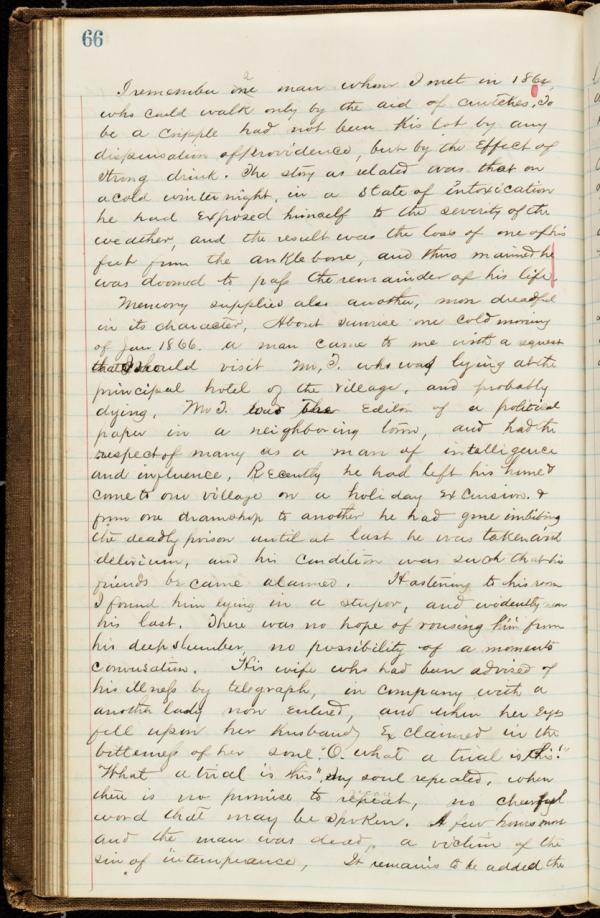 66
I remember one man whom I met in 186
who could walk only by the aid of crutches, To
be a cripple had not been his lot by any
dispensation of Providence, but by the Effect of
strong drink. The story as related was that on
a cold winter night, in a State of intoxication
he had Exposed himself to the severity of the
weather, and the result was the loss of one of his
feet from the ankle bone, and thus maimed he
was doomed to pass the remainder of his life
Memory supplies also another, more dreadful
in its character, About sunrise one cold morning
of Jan 1866. a man came to me with a request
that I should visit Mr, T. who was lying at the
principal hotel of the village, and probably
dying. Mr T. was the Editor of a political
paper in a neighboring town, and had the
respect of many as a man of intelligence
and influence, Recently he had left his home &
come to our village on a holiday Excursion. &
from one dramshop to another he had gone imbibing
the deadly poison until at last he was taken with
delirium, and his condition was such that his
friends became alarmed. Hastening to his room
I found him lying in a stupor, and evidently near
his last. There was no hope of rousing him from
his deep slumber, no possibility of a moments
conversation. His wife who had been advised of
his illness by telegraph, in company with a
another lady now Entered, and when her Eyes
fell upon her husband, Exclaimed in the
bitterness of her soul. "O. what a trial is this."
"What a trial is this", my soul repeated, when
there is no promise to repeat, no cheerful
word that may be spoken. A few hours more
and the man was dead, a victim of the
sin of intemperance, It remains to be added the